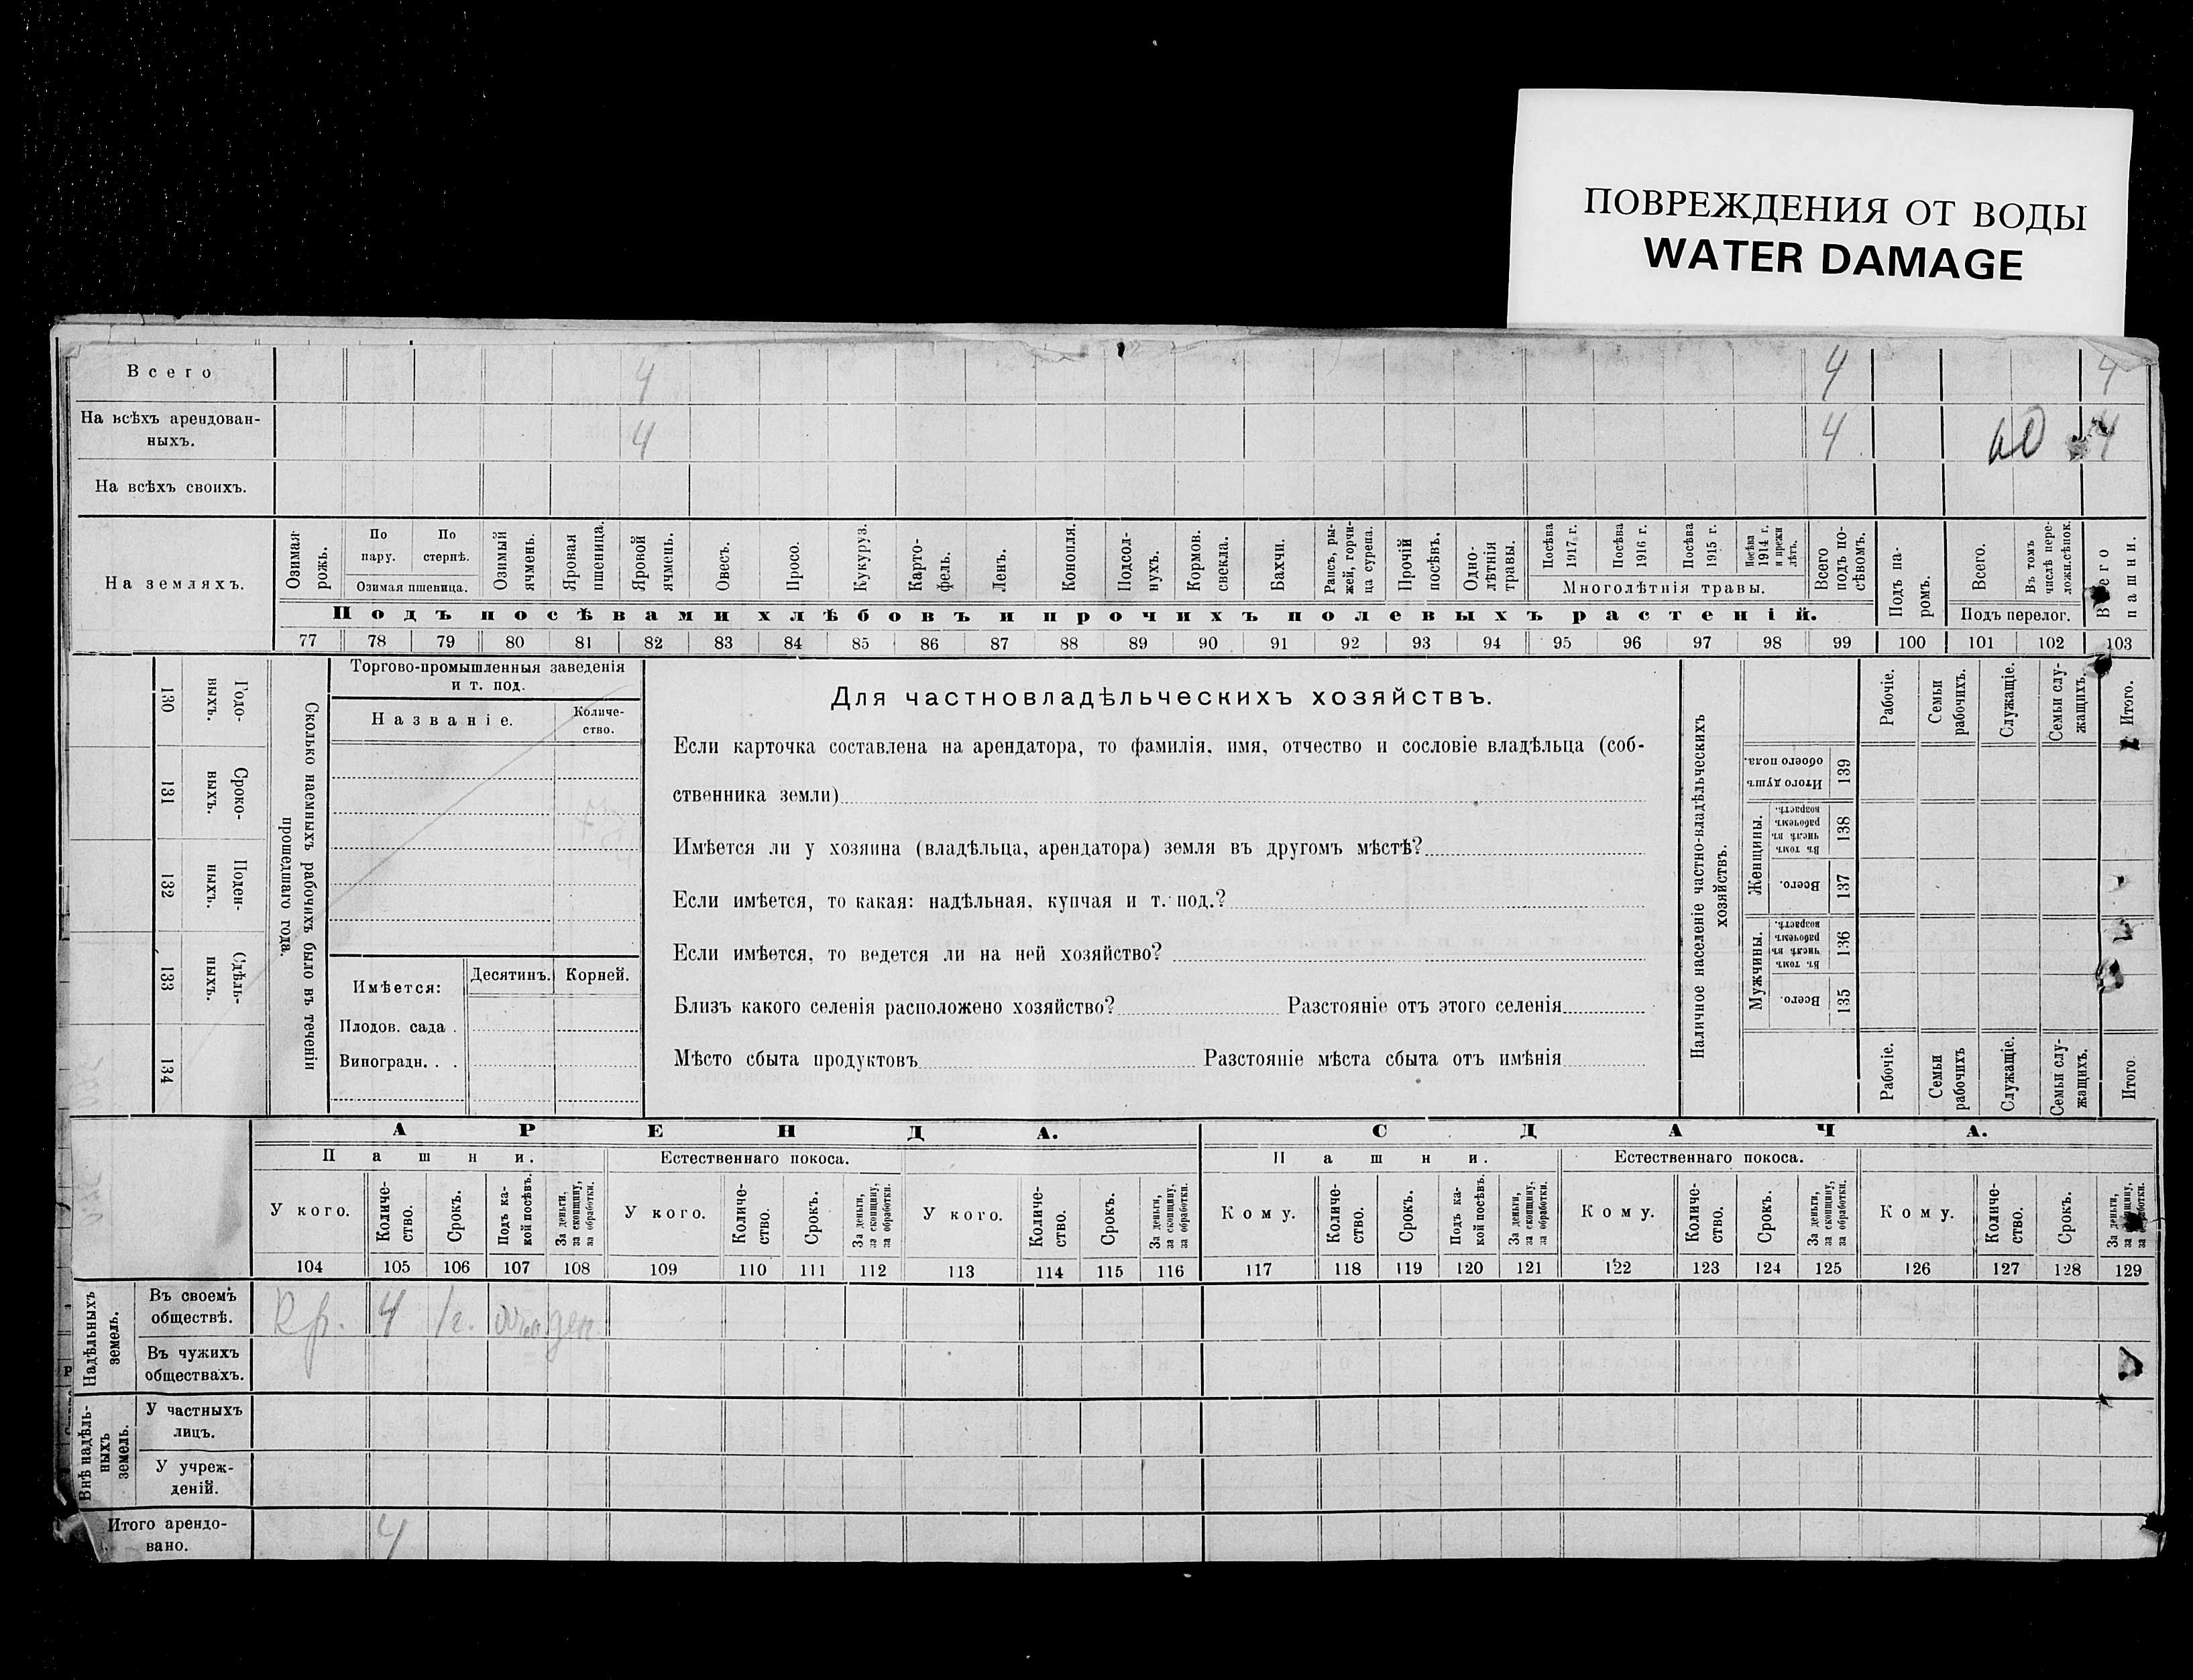 ПОВРЕЖДЕНИЯ ОТ ВОДЫ
WATER DAMAGE
Всего 4 4 4
На всѣхъ арендован-
ныхъ. 4 4 4
На всѣхъ своихъ.
На земляхъ.
Озимая рожь.
По пару.
По стернѣ.
Озимая пшеница.
Озимый ячмень.
Яровая пшеница.
Яровой ячмень.
Овесъ.
Просо.
Кукуруз.
Карто-
фель.
Ленъ.
Конопля.
Подсол-
нухъ.
Кормов.
свекла.
Бахчи.
Рапсъ, ры-
жей, горчи-
ца сурепа.
Прочій
посѣвъ.
Одно-
лѣтнія
травы.
Посѣва
1917 г.
Посѣва
1916 г.
Посѣва
1915 г.
Посѣва
1914 г.
и прежн
лѣтъ.
Многолѣтнія травы.
Всего
подъ по-
сѣвомъ.
Подъ па-
ромъ.
Всего.
Въ томъ
числѣ пере-
ложн.сѣнок.
Подъ перелог.
Всего
пашни.
Подъ посѣвами хлѣбовъ и прочихъ полевыхъ растеній.
77 78 79 80 81 82 83 84 85 86 87 88 89 90 91 92 93 94 95 96 97 98 99 100 101 102 103
130 Годо-
выхъ.
131 Сроко-
выхъ.
132 Поден-
ныхъ.
133 Сдѣль-
ныхъ.
134
Сколько наемныхъ рабочихъ было въ теченіи
прошедшаго года.
Торгово-промышленныя заведенія
и т. под.
Названіе.
Количе-
ство.
Имѣется:
Десятинъ.
Корней.
Плодов. сада .
Виноградн. . .
Для частновладѣльческихъ хозяйствъ.
Если карточка составлена на арендатора, то фамилія, имя, отчество и сословіе владѣльца (соб-
ственника земли)
Имѣется ли у хозяина (владѣльца, арендатора) земля въ другомъ мѣстѣ?
Если имѣется, то какая: надѣльная, купчая и т. под.?
Если имѣется, то ведется ли на ней хозяйство?
Близъ какого селенія расположено хозяйство? Разстояніе отъ этого селенія
Мѣсто сбыта продуктовъ Разстояніе мѣста сбыта отъ имѣнія
Наличное населеніе частно-владѣльческихъ
хозяйствъ.
Рабочіе.
Семьи
рабочихъ.
Служащіе.
Семьи слу-
жащихъ.
Итого.
Итого душъ
обоего пола.
139
Женщины.
Въ томъ
числѣ въ
рабочемъ
возрастѣ.
138
Всего.
137
Мужчины.
Въ томъ
числѣ въ
рабочемъ
возрастѣ.
136
Всего.
135
Рабочіе.
Семьи
рабочихъ
Служащіе.
Семьи слу-
жащихъ.
Итого
АРЕНДА.
СДАЧА.
Пашни.
Естественнаго покоса.
Пашни.
Естественнаго покоса.
У кого.
Количе-
ство.
Срокъ.
Подъ ка-
кой посѣвъ.
За деньги,
за скопщину,
за обработки.
У кого.
Количе-
ство.
Срокъ.
За деньги,
за скопщину,
за обработки.
У кого.
Количе-
ство.
Срокъ.
За деньги,
за скопщину,
за обработки.
Кому.
Количе-
ство.
Срокъ.
Подъ ка-
кой посѣвъ.
За деньги,
за скопщину,
за обработки.
Кому.
Количе-
ство.
Срокъ.
За деньги,
за скопщину,
за обработки.
Кому.
Количе-
ство.
Срокъ.
За деньги,
за скопщину,
за обработки.
104 105 106 107 108 109 110 111 112 113 114 115 116 117 118 119 120 121 122 123 124 125 126 127 128 129
Надѣльныхъ
земель.
Въ своемъ
обществѣ. Кр. 4 1г. ден
Въ чужихъ
обществахъ.
Внѣ надѣль-
ныхъ
земель.
У частныхъ
лицъ.
У учреж-
деній.
Итого арендо-
вано. 4